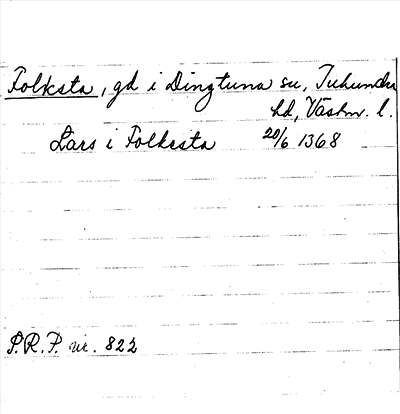 Folksta, gd i Dingtuna sn, Tuhundra
hd, Västm. l.
Lars i Folksta 20/6 1368
S.R.P. nr. 822